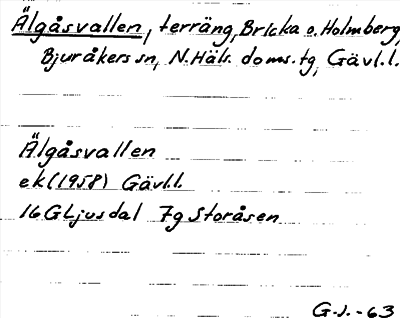 Älgåsvallen, terräng, Bricka o. Holmberg,
Bjuråkers sn, N. Häls. doms. tg, Gävl. l.
Älgåsvallen
ek (1958) Gävl. l.
16G Ljusdal 7g Storåsen
G.J. -63